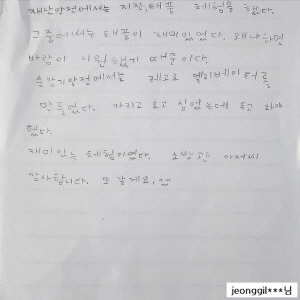 재난안전에서는 지진, 태풍 체험을 했다.
그중에서는 태풍이 재미있었다. 왜냐하면
바람이 시원했기 때문이다.
승강기안전에서는 레고로 엘리베이터를
만들었다. 가지고 오고 싶었는데 두고 와야
했다.
재미있는 체험이였다. 소방관 아저씨
감사합니다. 또 갈게요.
jeonggil***님